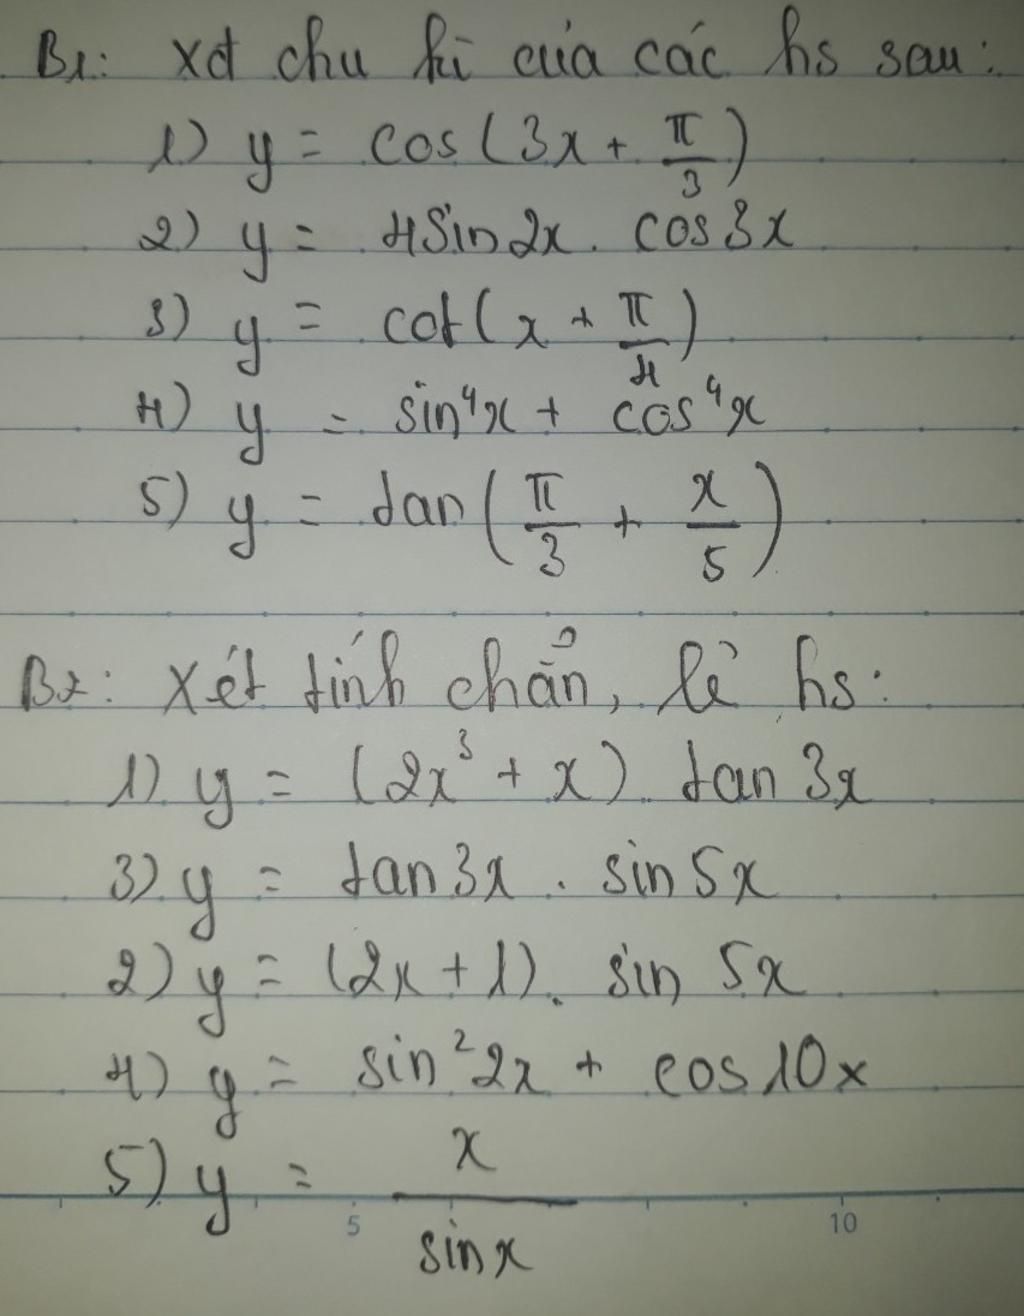 B1: xđ chu kì của các hs sau:
1) y = cos(3x + π/3)
2) y = 4sin2x. cos3x
3) y = cot(x + π/4)
4) y = sin⁴x + cos⁴x
5) y = tan(π/3 + x/5)
B2: Xét tính chẵn, lẻ hs:
1) y = (2x³ + x). tan 3x
3) y = tan3x . sin5x
2) y = (2x + 1). sin 5x
4) y = sin²2x + cos10x
5) y = x/sinx
5 10